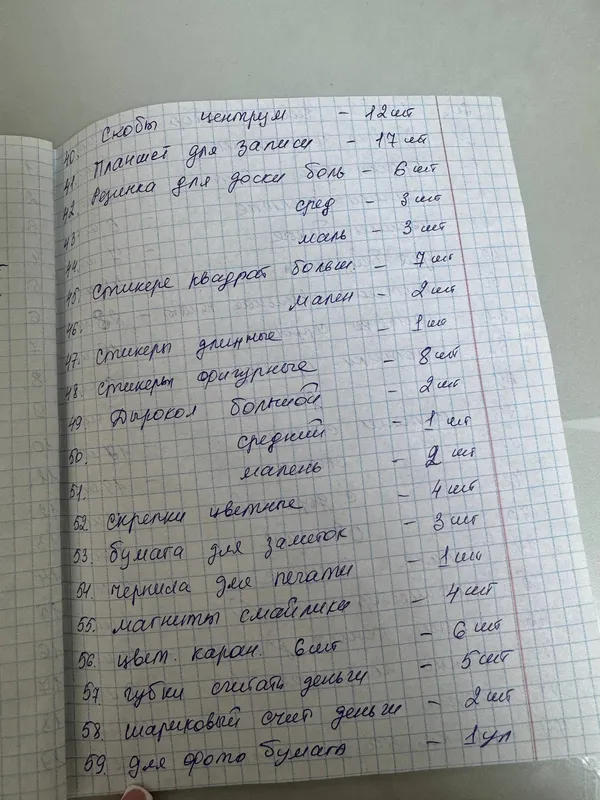 40. Скобы центрум - 12 шт
41. Планшет для записи - 17 шт
42 Резинка для доски боль - 6 шт
43 сред - 3 шт
44. маль - 3 шт
45. Стикере квадрат больш. - 7 шт
46. мален - 2 шт
47. Стикеры длинные - 1 шт
48. Стикеры фигурные - 8 шт
49 Дырокол большой - 2 шт
50. средний - 1 шт
51. малень - 2 шт
52. скрепки цветные - 4 шт
53. бумага для заметок - 3 шт
54. чернила для печати - 1 шт
55. магниты смайлики - 4 шт
56. цвет. каран. 6 шт - 6 шт
57. губки считать деньги - 5 шт
58 шариковый счит деньги - 2 шт
59. для фото бумага - 1 уп